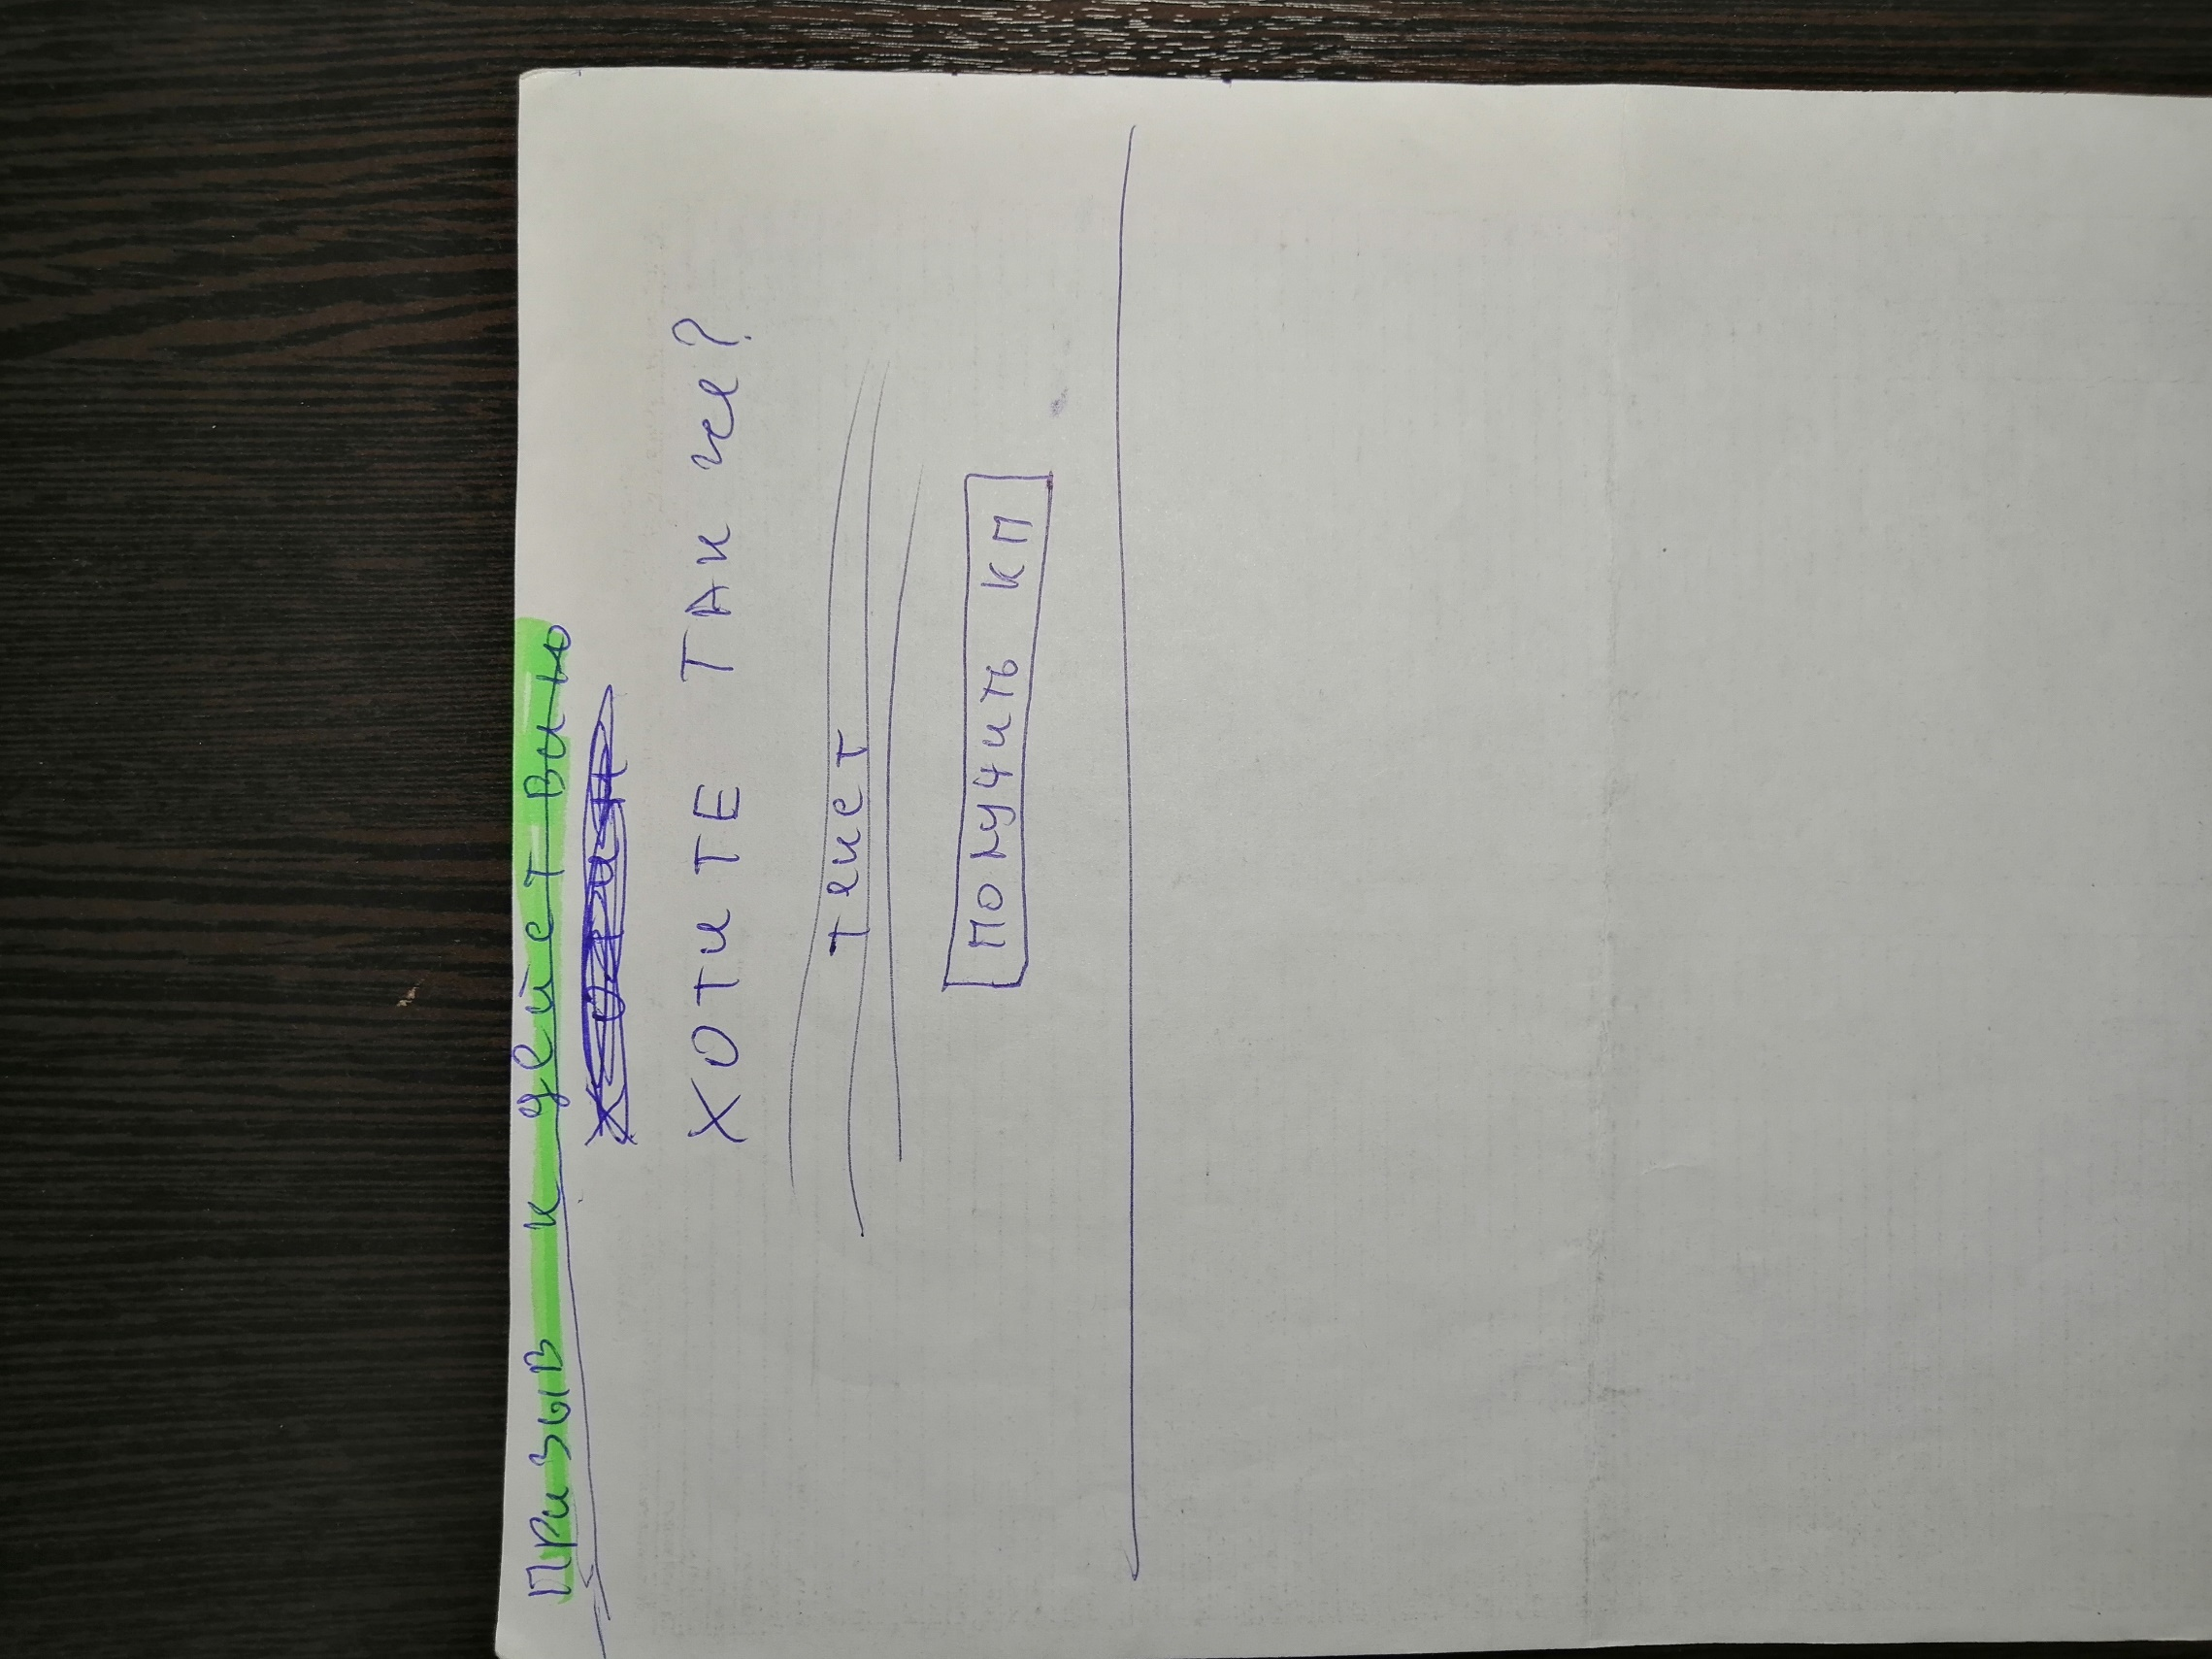 Призыв к действию
ХОТИТЕ ТАК же?
текст
Получить КП